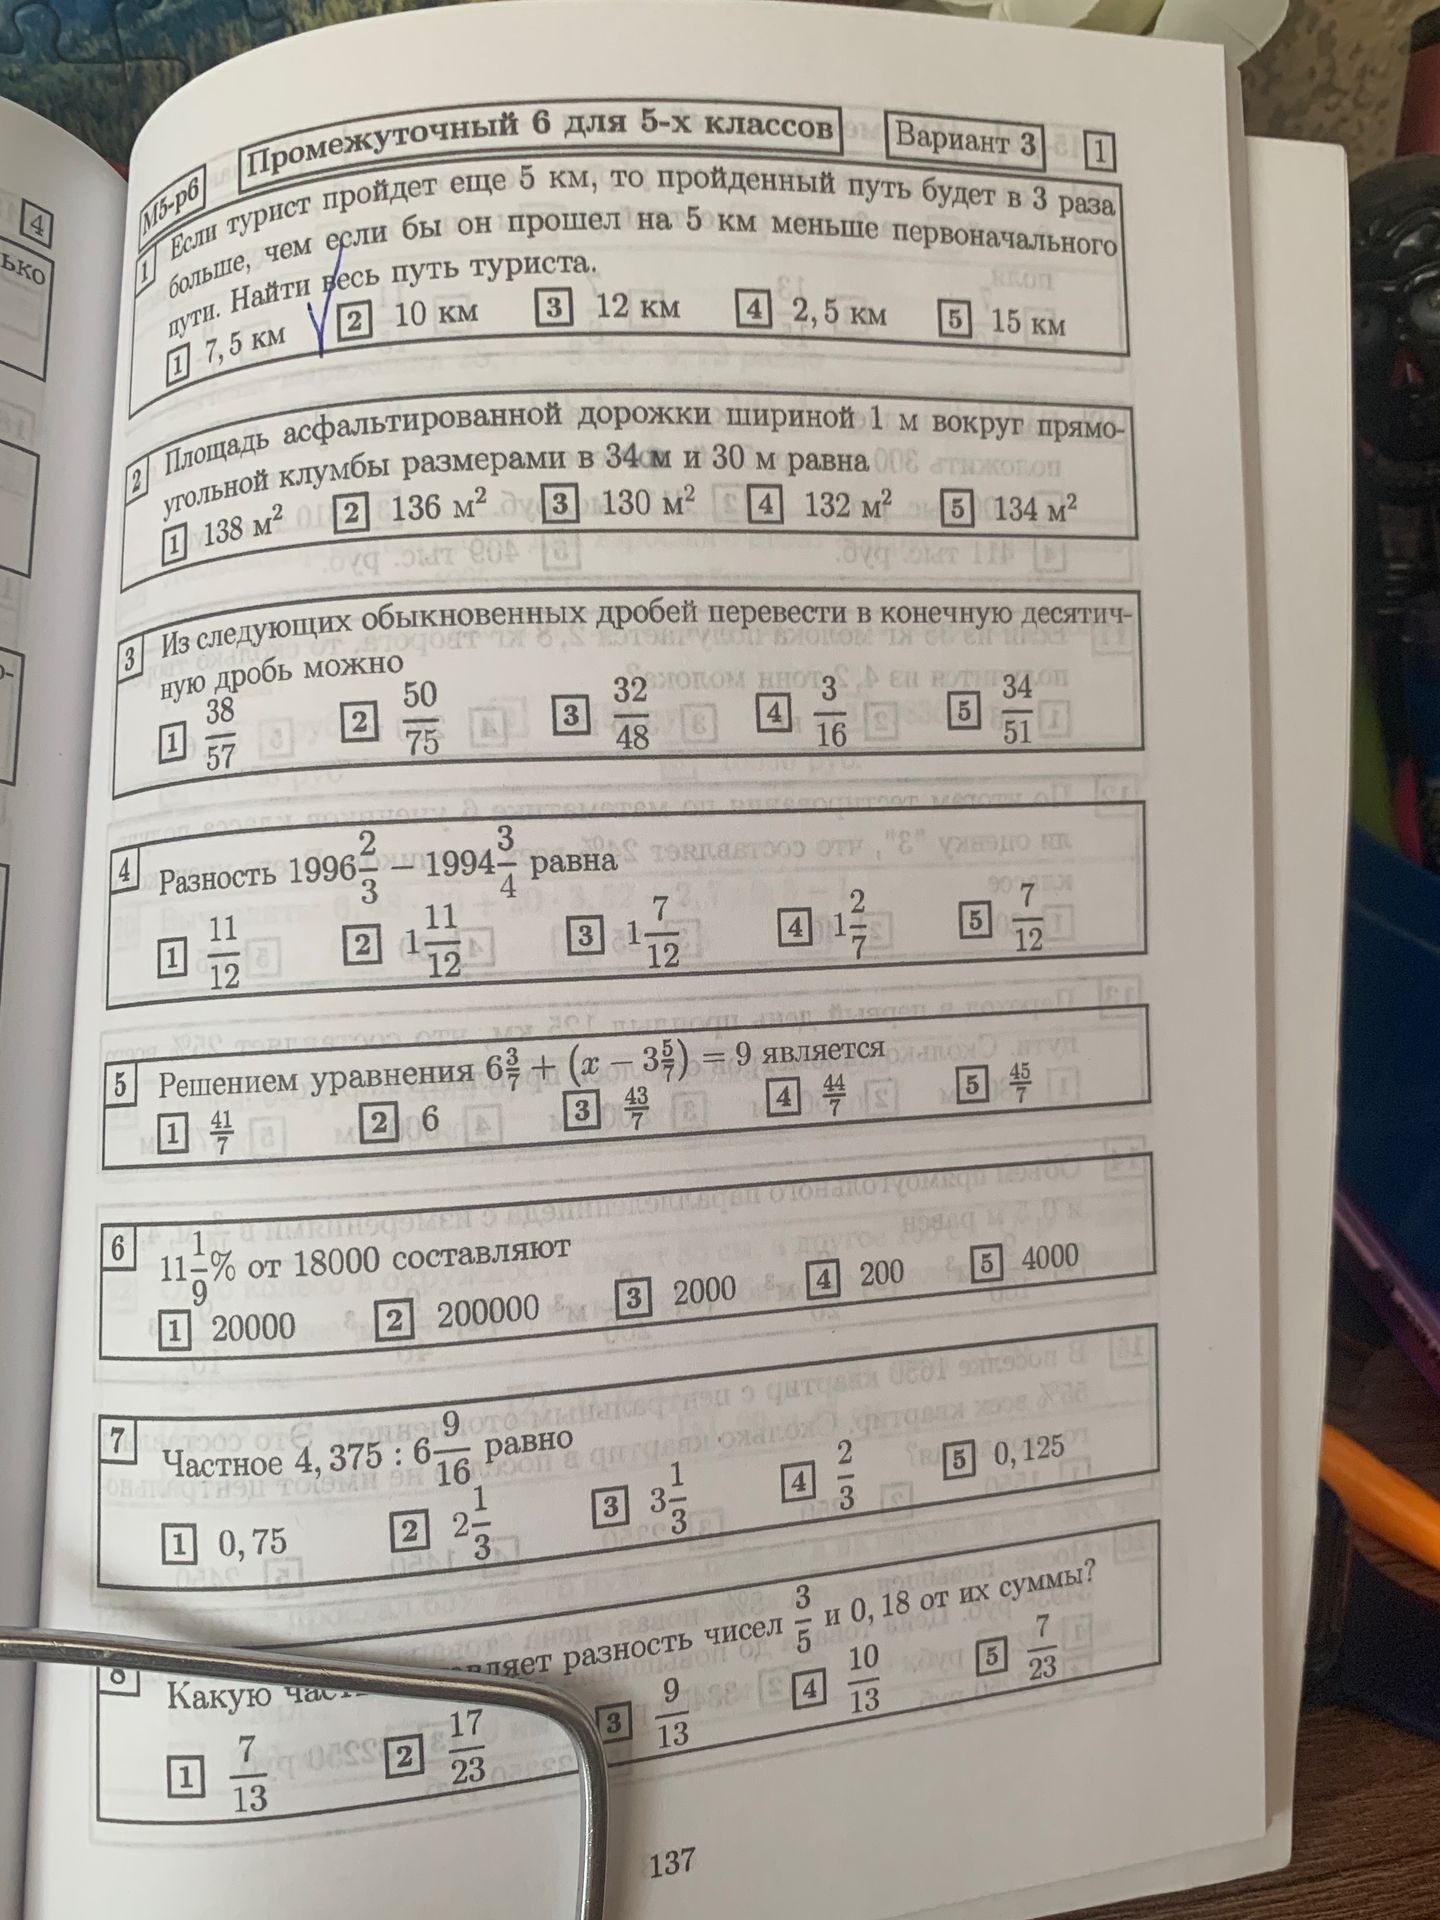 4
ько
М5-р6 Промежуточный 6 для 5-х классов Вариант 3 1
1 Если турист пройдет еще 5 км, то пройденный путь будет в 3 раза
больше, чем если бы он прошел на 5 км меньше первоначального
пути. Найти весь путь туриста.
1 7,5 км 2 10 км 3 12 км 4 2,5 км 5 15 км
2 Площадь асфальтированной дорожки шириной 1 м вокруг прямо-
угольной клумбы размерами в 34 м и 30 м равна
1 138 м² 2 136 м² 3 130 м² 4 132 м² 5 134 м²
3 Из следующих обыкновенных дробей перевести в конечную десятич-
ную дробь можно
1 38/57 2 50/75 3 32/48 4 3/16 5 34/51
4 Разность 1996 2/3 − 1994 3/4 равна
1 11/12 2 1 11/12 3 1 7/12 4 1 2/7 5 7/12
5 Решением уравнения 6 3/7 + (x − 3 5/7) = 9 является
1 41/7 2 6 3 43/7 4 44/7 5 45/7
6 11 1/9 % от 18000 составляют
1 20000 2 200000 3 2000 4 200 5 4000
7 Частное 4,375 : 6 9/16 равно
1 0,75 2 2 1/3 3 3 1/3 4 2/3 5 0,125
8 Какую разность чисел 3/5 и 0,18 от их суммы?
1 7/13 2 17/23 3 9/13 4 10/13 5 7/23
137